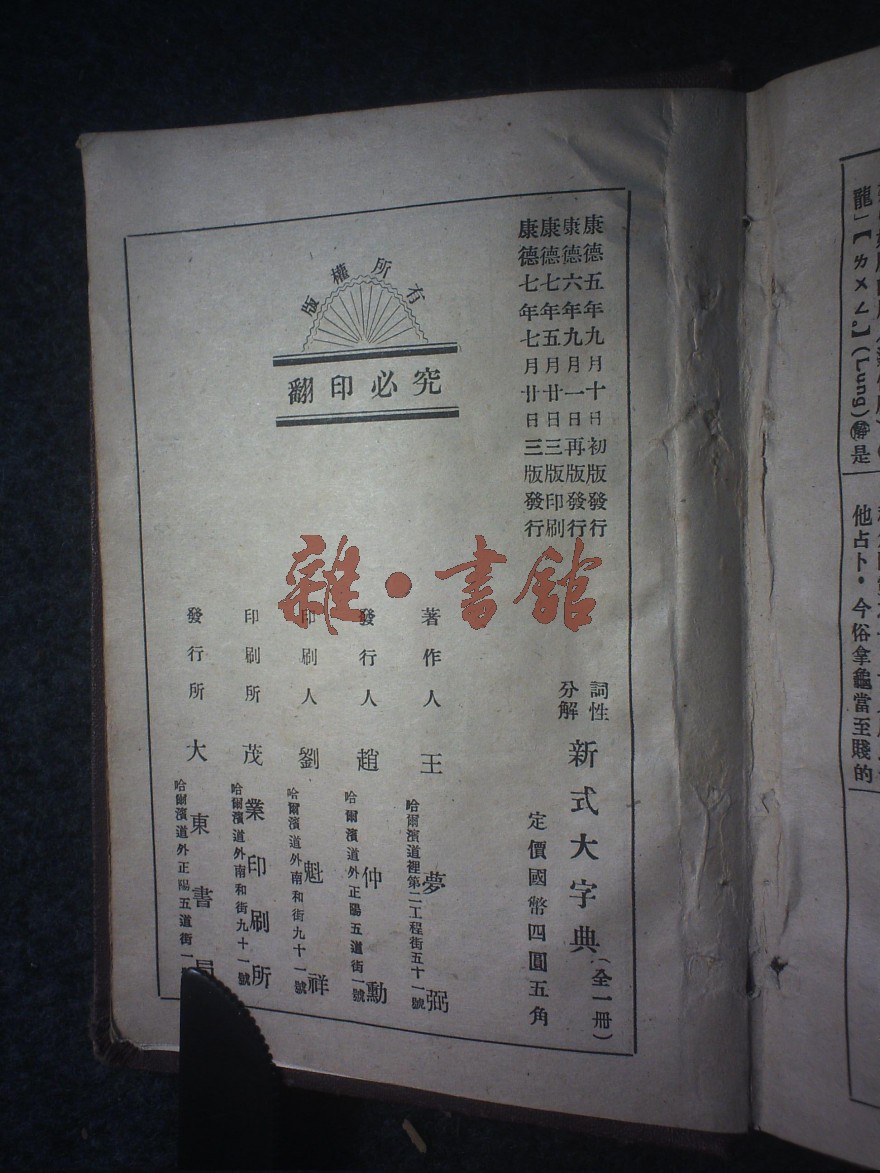 康德五年九月十日初版發行
康德六年九月一日再版發行
康德七年五月廿日三版印刷
康德七年七月廿日三版發行
版權所有
翻印必究
詞性分解
新式大字典（全一冊）
定價國幣四圓五角
哈爾濱道裡第二工程街五十一號
著作人 王夢弼
哈爾濱道外正陽五道街一號
發行人 趙仲勳
哈爾濱道外南和街九十一號
印刷人 劉魁祥
哈爾濱道外南和街九十一號
印刷所 茂業印刷所
哈爾濱道外正陽五道街一
發行所 大東書局
雜·書館
龍」【ㄌㄨㄥ。】(Lung)
是
他占卜·今俗拿龜當至賤的